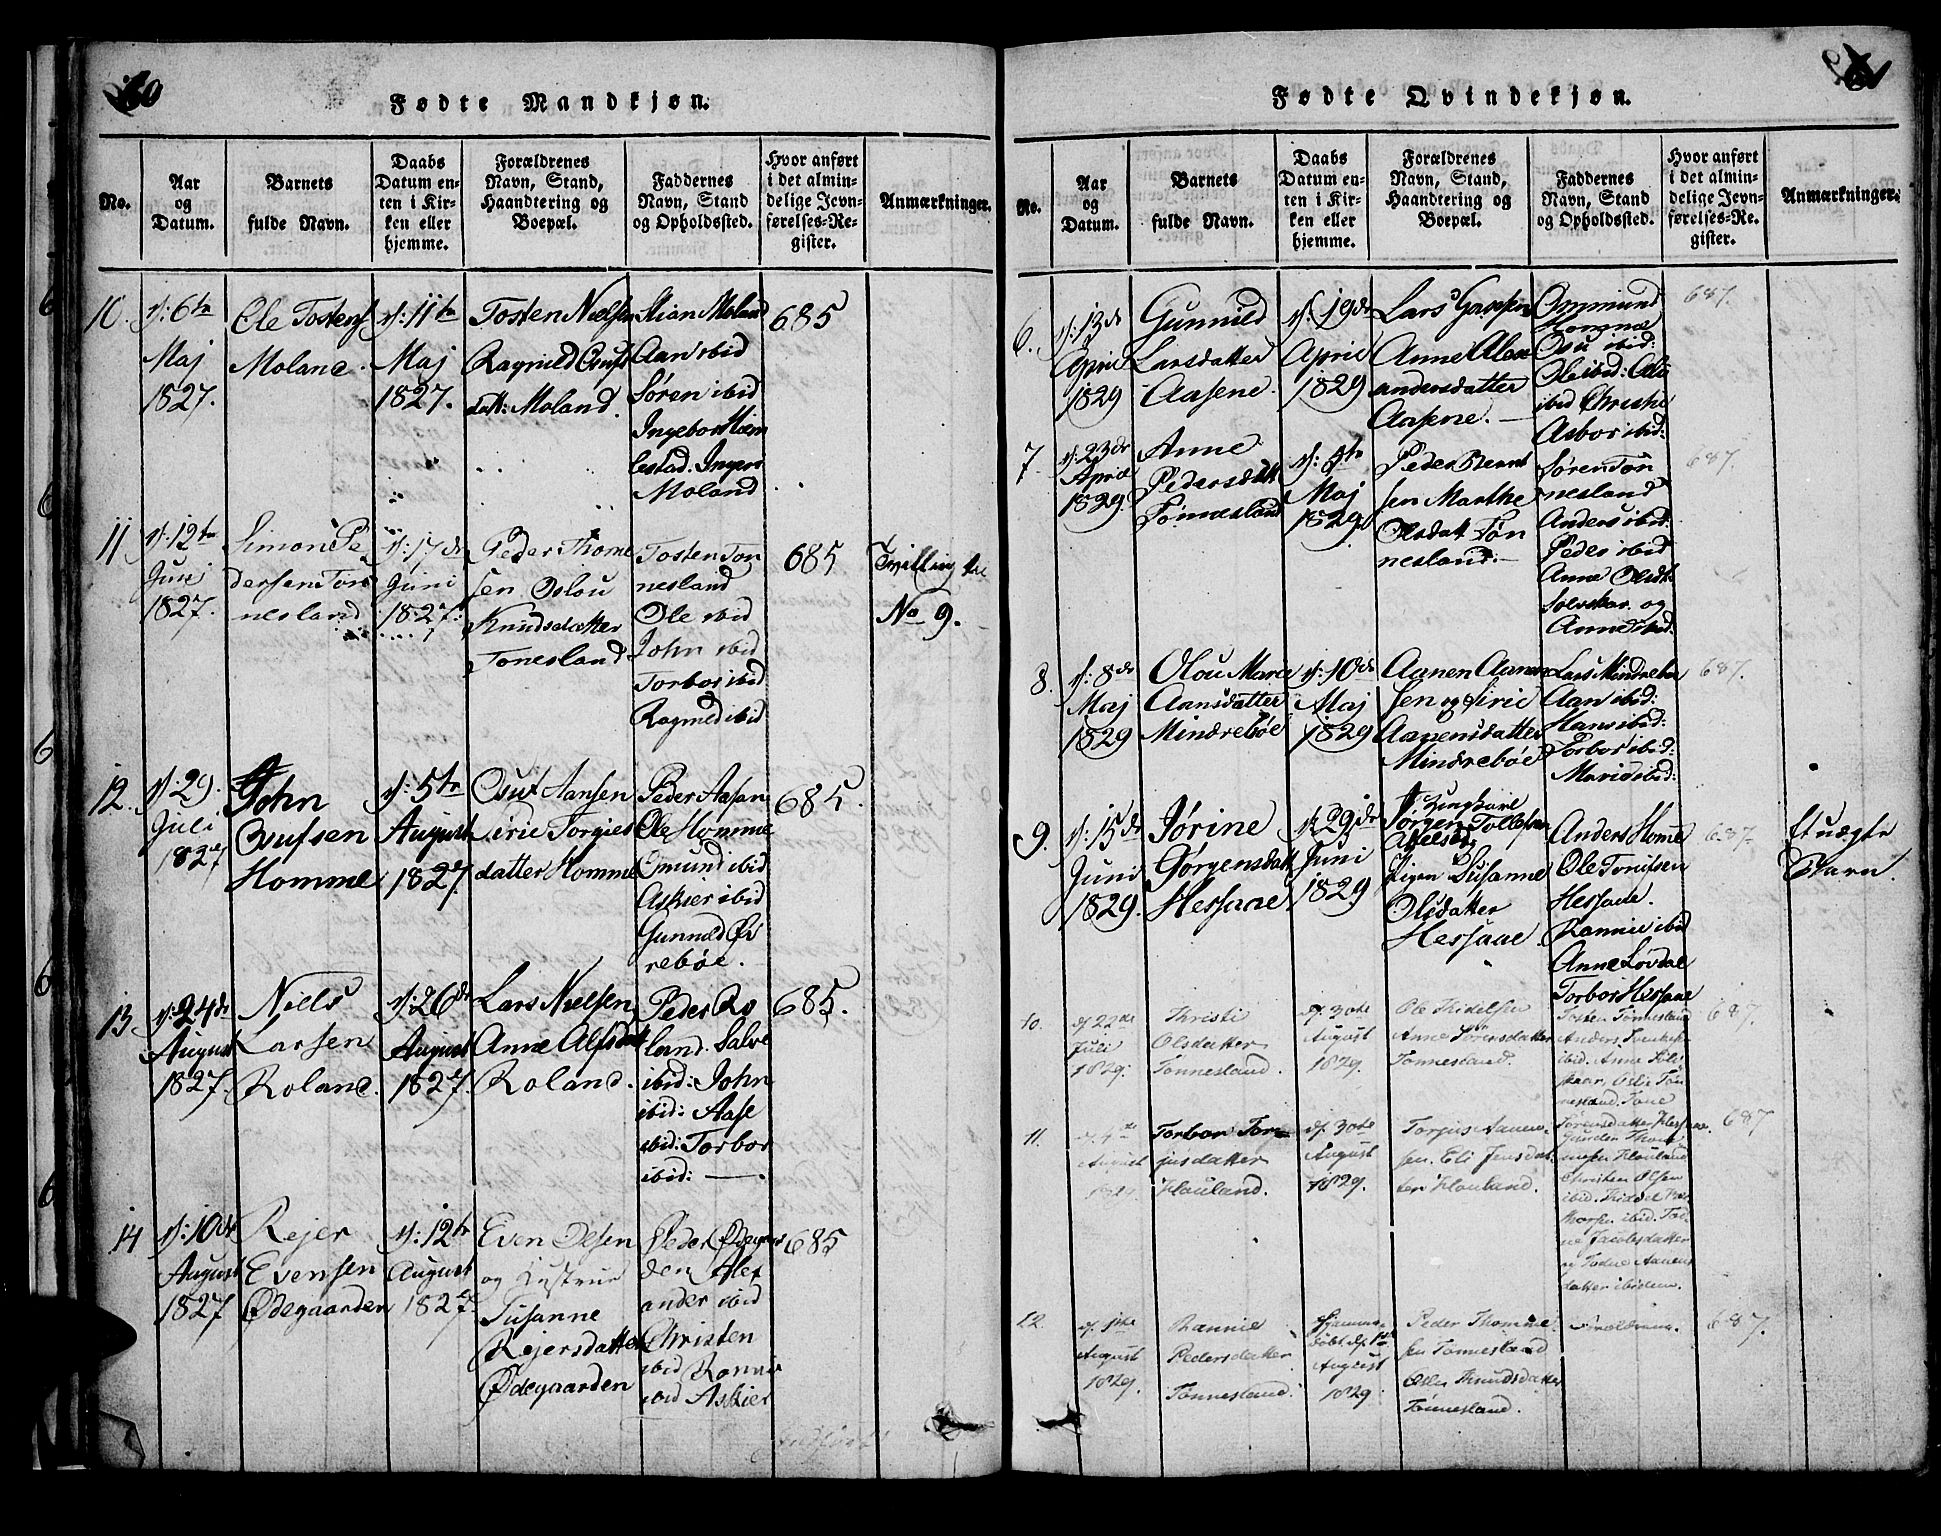 60
Fødte Mandkjøn.
No.
Aar
og
Datum.
Barnets
fulde Navn.
Daabs
Datum en-
ten i Kir-
ken eller
hjemme.
Forældrenes
Navn, Stand,
Haandtering og
Boepæl.
Faddernes
Navn, Stand
og Opholdssted.
Hvor anført
i det almin-
delige Jevn-
førelses-Re-
gister.
Anmærkninger.
10.
d: 6te
Maj
1827.
Ole Tostens
Moland.
d: 11te
Maj
1827.
Tosten Nielsen
Ragnild
datt: Moland.
Stian Moland
Aan ibid
Søren ibid
Ingebor
lestad. Inger
Moland
685
11
d: 12te
Juni
1827.
Simon Pe
dersen Tøn
nesland
d: 17de
Juni
1827.
Peder Thome
sen Oslou
Knudsdatter
Tonesland
Tosten Ton
nesland
Ole ibid
John ibid
Torbor ibid
Ragnild ibid
685
Tvilling til
No 9.
12.
d: 29.
Juli
1827
John
Osufsen
Homme
d: 5te
August
1827.
Osuf Aansen
Sirie Torgies
datter Homme
Peder Aasan
Ole Homme
Omund ibid
Askier ibid
Gunnild Øv
rebøe.
685.
13
d: 24de
August
1827.
Niels
Larsen
Roland.
d: 26de
August
1827
Lars Nielsen
Anne Alfsdatt
Roland.
Peder Ro
land. Salve
ibid: John
ibid: Aase
ibid: Torbor
ibid: —
685.
14
d: 10de
August
1827
Rejer
Evensen
Ødegaarden
d: 12te
August
1827.
Even Olsen
og Hustrue
Susanne
Rejersdatter
Ødegaarden
Peder Ødegaar
den Alex
ander ibid
Christen
ibid Rannie
ibid Askier
685
Fødte Qvindekjøn.
No.
Aar
og
Datum.
Barnets
fulde Navn.
Daabs
Datum en-
ten i Kir-
ken eller
hjemme.
Forældrenes
Navn, Stand,
Haandtering og
Boepæl.
Faddernes
Navn, Stand
og Opholdssted.
Hvor anført
i det almin-
delige Jevn-
førelses-Re-
gister.
Anmærkninger.
6.
d: 13de
April
1829
Gunnild
Larsdatter
Aasene.
d: 19de
April
1829
Lars
Anne Alex
andersdatter
Aasene. —
Ommund
Osu ibid:
Ole ibid:
ibid Christie
Asbor ibid:
687.
7.
d: 23de
April
1829.
Anne
Pedersdatt
Tønnesland
d:
Maj
1829.
Peder Bernt
sen Marthe
Olsdatt Tøn
nesland. —
Søren Tøn
nesland
Anders ibid:
Peder ibid
Anne Olsdt.
og
Anne ibid:
687.
8.
d: 8de
Maj
1829
Olou Marie
Aansdatter
Mindrebøe
d: 10de
Maj
1829
Aanen Aanen
sen og Sirie
Aanensdatter
Mindrebøe
Lars Mindrebøe
Aan ibid:
Hans ibid:
Torbor ibid:
Marie ibid:
687.
9.
d: 15de
Juni
1829.
Jørine
Gørgensdatt
Hessaae
d: 29de
Juni
1829
Ungkarl
Jørgen Tollefsen
Pigen Susanne
Olsdatter
Hessaae.
Anders Homme
Ole Torufsen
Hessaae.
Rannie ibid
Anne Løvdal
Torbor Hessaae
687.
Et uægte
Barn.
10.
d. 22de
Juli
1829.
Christi
Olsdatter
Tønnesland.
d. 30te
August
1829.
Ole Tridelsen
Anne Sørensdatter
Tønnesland.
Tosten Tønnesland
Anders
ibid. Anne
Tøn
nesland. Tone
687.
11.
d. 4de
August
1829.
Torbor Tor-
jusdatter
Houland.
d. 30te
August
1829.
Torjus Aanen-
sen. Eli Jensdat-
ter Houland.
Gunder Thom-
Houland
Christen Olsen
ibid.
ibid.
ne Jacobsdatter
og Todne Aanens
datter ibidem.
687
12.
d. 1ste
August
1829.
Rannie
Pedersdatter
Tønnesland.
Hjemme-
døbt d. 1ste
August
1829.
Peder Thomme-
sen Tønnesland
Knudsdatter
Tønnesland.
Forældrene.
687.